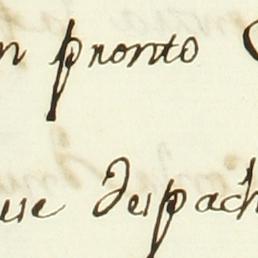 n pronto
ue despach